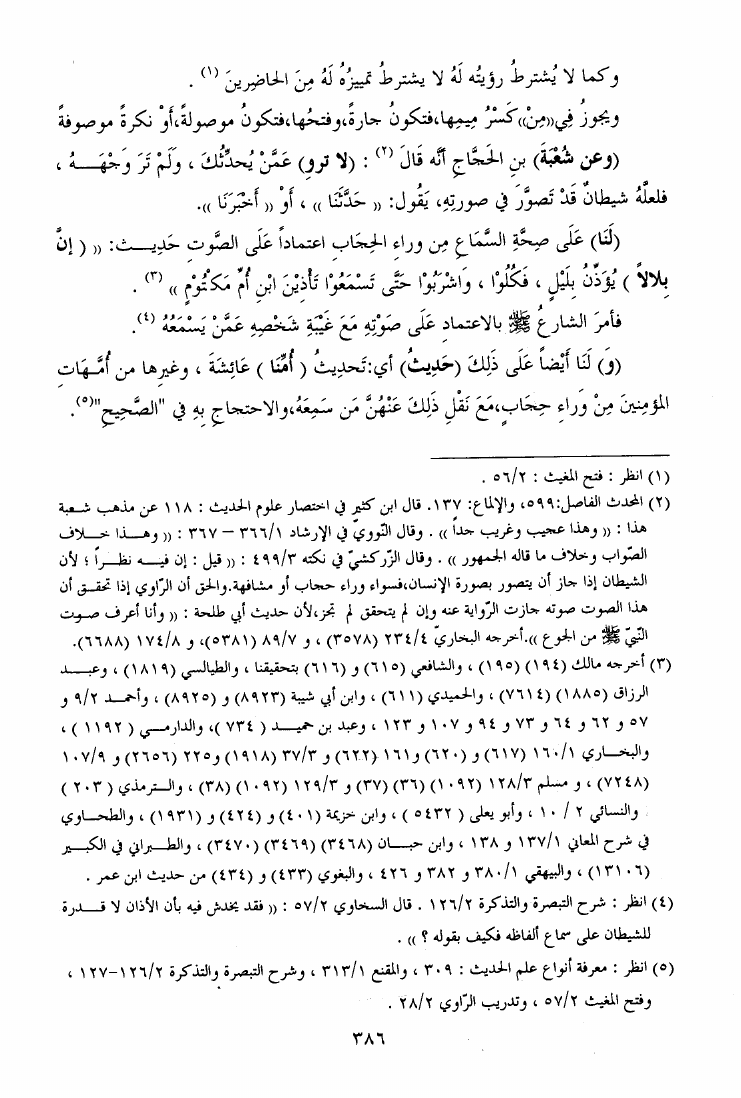 وكما لا يُشترطُ رؤيتُه لَهُ لا يشترطُ تمييزُهُ لَهُ مِنَ الحَاضِرِينَ (١) .
ويجوزُ فِي«مِنْ»كَسْرُ مِيمِها،فتكونُ جارةً،وفتحُها،فتكونُ موصولةً،أَوْ نكرةً موصوفةً
(وعن شُعْبَةَ) بنِ الحَجَّاجِ أنَّه قَالَ (٢) : (لا تروِ) عَمَّنْ يُحدِّثُكَ ، ولَمْ تَرَ وَجْهَـــهُ ،
فلعلَّهُ شيطانٌ قَدْ تَصوَّرَ في صورتِهِ، يَقُول: « حَدَّثَنَا » ، أَوْ « أَخْبَرَنَا ».
(لَنَا) عَلَى صِحَّةِ السَّمَاعِ مِن وراءِ الحِجَابِ اعتماداً عَلَى الصَّوتِ حَدِيـــث: « ( إنَّ
بِلالاً ) يُؤَذِّنُ بِلَيْلٍ ، فَكُلُوْا ، وَاشْرَبُوْا حَتَّى تَسْمَعُوْا تَأْذِيْنَ ابْنِ أُمِّ مَكْتُوْمٍ » (٣) .
فأمرَ الشارعُ ﷺ بالاعتمادِ عَلَى صَوْتِهِ مَعَ غَيْبَةِ شَخْصِهِ عَمَّنْ يَسْمَعُهُ (٤).
(وَ) لَنَا أَيْضاً عَلَى ذَلِكَ (حَدِيثُ) أي:تَحديثُ ( أُمِّنَا ) عَائِشَةَ ، وغيرِها من أُمَّـهَاتِ
المؤمِنينَ مِنْ وَراءِ حِجَابٍ،مَعَ نَقْلِ ذَلِكَ عَنْهُنَّ مَن سَمِعَهُ،والاحتجاجِ بِهِ في "الصَّحِيحِ"(٥).
(١) انظر : فتح المغيث : ٥٦/٢ .
(٢) المحدث الفاصل:٥٩٩، والإلماع: ١٣٧. قال ابن كثير في اختصار علوم الحديث : ١١٨ عن مذهب شـعبة
هذا : « وهذا عجيب وغريب جداً » . وقال النَّوويّ في الإرشاد ٣٦٦/١ – ٣٦٧ : « وهـــذا خـــلاف
الصَّواب وخلاف ما قاله الجمهور » . وقال الزّركشيّ في نكته ٤٩٩/٣ : « قيل : إن فيـــه نظـــراً ؛ لأن
الشيطان إذا جاز أن يتصور بصورة الإنسان،فسواء وراء حجاب أو مشافهة.والحق أن الرَّاوي إذا تحقـــق أن
هذا الصوت صوته جازت الرّواية عنه وإن لم يتحقق لم تجز،لأن حديث أبي طلحة : « وأنا أعرف صـوت
النّبيّ ﷺ من الجوع ».أخرجه البخاريّ ٢٣٤/٤ (٣٥٧٨) ، و ٨٩/٧ (٥٣٨١)، و ١٧٤/٨ (٦٦٨٨).
(٣) أخرجه مالك (١٩٤) (١٩٥) ، والشافعي (٦١٥) و (٦١٦) بتحقيقنا ، والطيالسي (١٨١٩) ، وعبـــد
الرزاق (١٨٨٥) (٧٦١٤) ، والحميدي (٦١١) ، وابن أبي شيبة (٨٩٢٣) و (٨٩٢٥) ، وأحمـــد ٩/٢ و
٥٧ و ٦٢ و ٦٤ و ٧٣ و ٩٤ و ١٠٧ و ١٢٣ ، وعبد بن حميـــد ( ٧٣٤ )، والدارمـــي ( ١١٩٢ ) ،
والبخـــاري ١٦٠/١ (٦١٧) و (٦٢٠) و١٦١ (٦٢٢) و ٣٧/٣ (١٩١٨) و٢٢٥ (٢٦٥٦) و ١٠٧/٩
(٧٢٤٨) ، و مسلم ١٢٨/٣ (١٠٩٢) (٣٦) (٣٧) و ١٢٩/٣ (١٠٩٢) (٣٨) ، والـــترمذي ( ٢٠٣ )
والنسائي ٢ / ١٠ ، وأبو يعلى ( ٥٤٣٢ ) ، وابن خزيمة (٤٠١) و (٤٢٤) و (١٩٣١) ، والطحـــاوي
في شرح المعاني ١٣٧/١ و ١٣٨ ، وابن حبـــان (٣٤٦٨) (٣٤٦٩) (٣٤٧٠) ، والطـــبراني في الكبـــير
(١٣١٠٦) ، والبيهقي ٣٨٠/١ و ٣٨٢ و ٤٢٦ ، والبغوي (٤٣٣) و (٤٣٤) من حديث ابن عمر .
(٤) انظر : شرح التبصرة والتذكرة ١٢٦/٢ . قال السخاوي ٥٧/٢ : « فقد يخدش فيه بأن الأذان لا قـــدرة
للشيطان على سماع ألفاظه فكيف بقوله ؟ » .
(٥) انظر : معرفة أنواع علم الحديث : ٣٠٩ ، والمقنع ٣١٣/١ ، وشرح التبصرة والتذكرة ١٢٦/٢-١٢٧ ،
وفتح المغيث ٥٧/٢ ، وتدريب الرَّاوي ٢٨/٢ .
٣٨٦